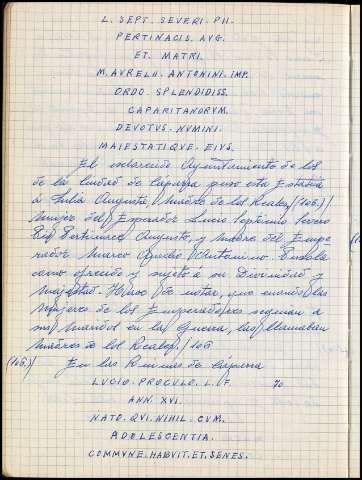 L. SEPT. SEVERI. PII.
PERTINACIS. AVG.
ET. MATRI.
M. AVRELA. ANTONINI. IMP.
ORDO. SPLENDIDISS.
CAPARITANORVM.
DEVOTVS. NVMINI.
MAIESTATIQVE. EIVS.
El esclarecido Ayuntamiento de los
de la Ciudad de Cáparra puso esta Estatua
á Julia Augusta, Madre de los Reales /(106.)/
Mujer del Emperador Lucio Septimio Severo
Pio Pertinace Augusto, y Madre del Empe
rador Marco Aurelio Antonino. Pusola
como ofrecido y sujeto á su Divinidad y
majestad. Hase de notar, que cuando las
mujeres de los Emperadores seguian a
sus maridos en la Guerra, las llamaban
Madres de los Reales. / 106
(106.)/ En las Ruinas de Cáparra
LUCIO. PROCULO. L. F.
ANN. XVI.
NATO. QVI. NIHIL. CVM.
ADOLESCENTIA.
COMMVNE. HABVIT. ET. SENES.